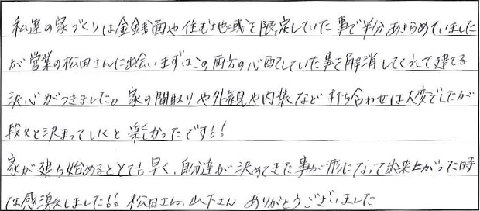 私達の家づくりは金銭面や住む地域を限定していた事で半分あきらめていました
が営業の松田さんに出会いまずはその両方の心配していた事を解消してくれて建てる
決心がつきました。家の間取りや外観や内装など打ち合わせは大変でしたが
段々と決まっていくと楽しかったです！！
家が建ち始めるととても早く、自分達が決めてきた事が形になって出来上がった時
は感激しました！！松田さん、山下さん ありがとうございました